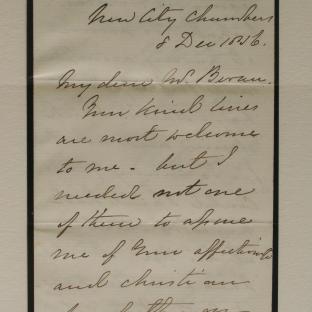 New City Chambers
8 Dec 1856.
My dear Mr. Bevan.
Your kind lines
are most welcome
to me - but I
needed not one
of them to assure
me of your affectionate
and christian